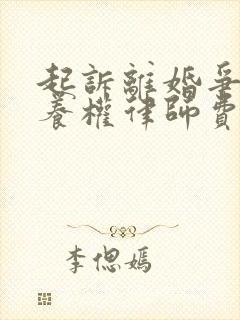 起訴離婚爭
養權律師費
李偲嫣